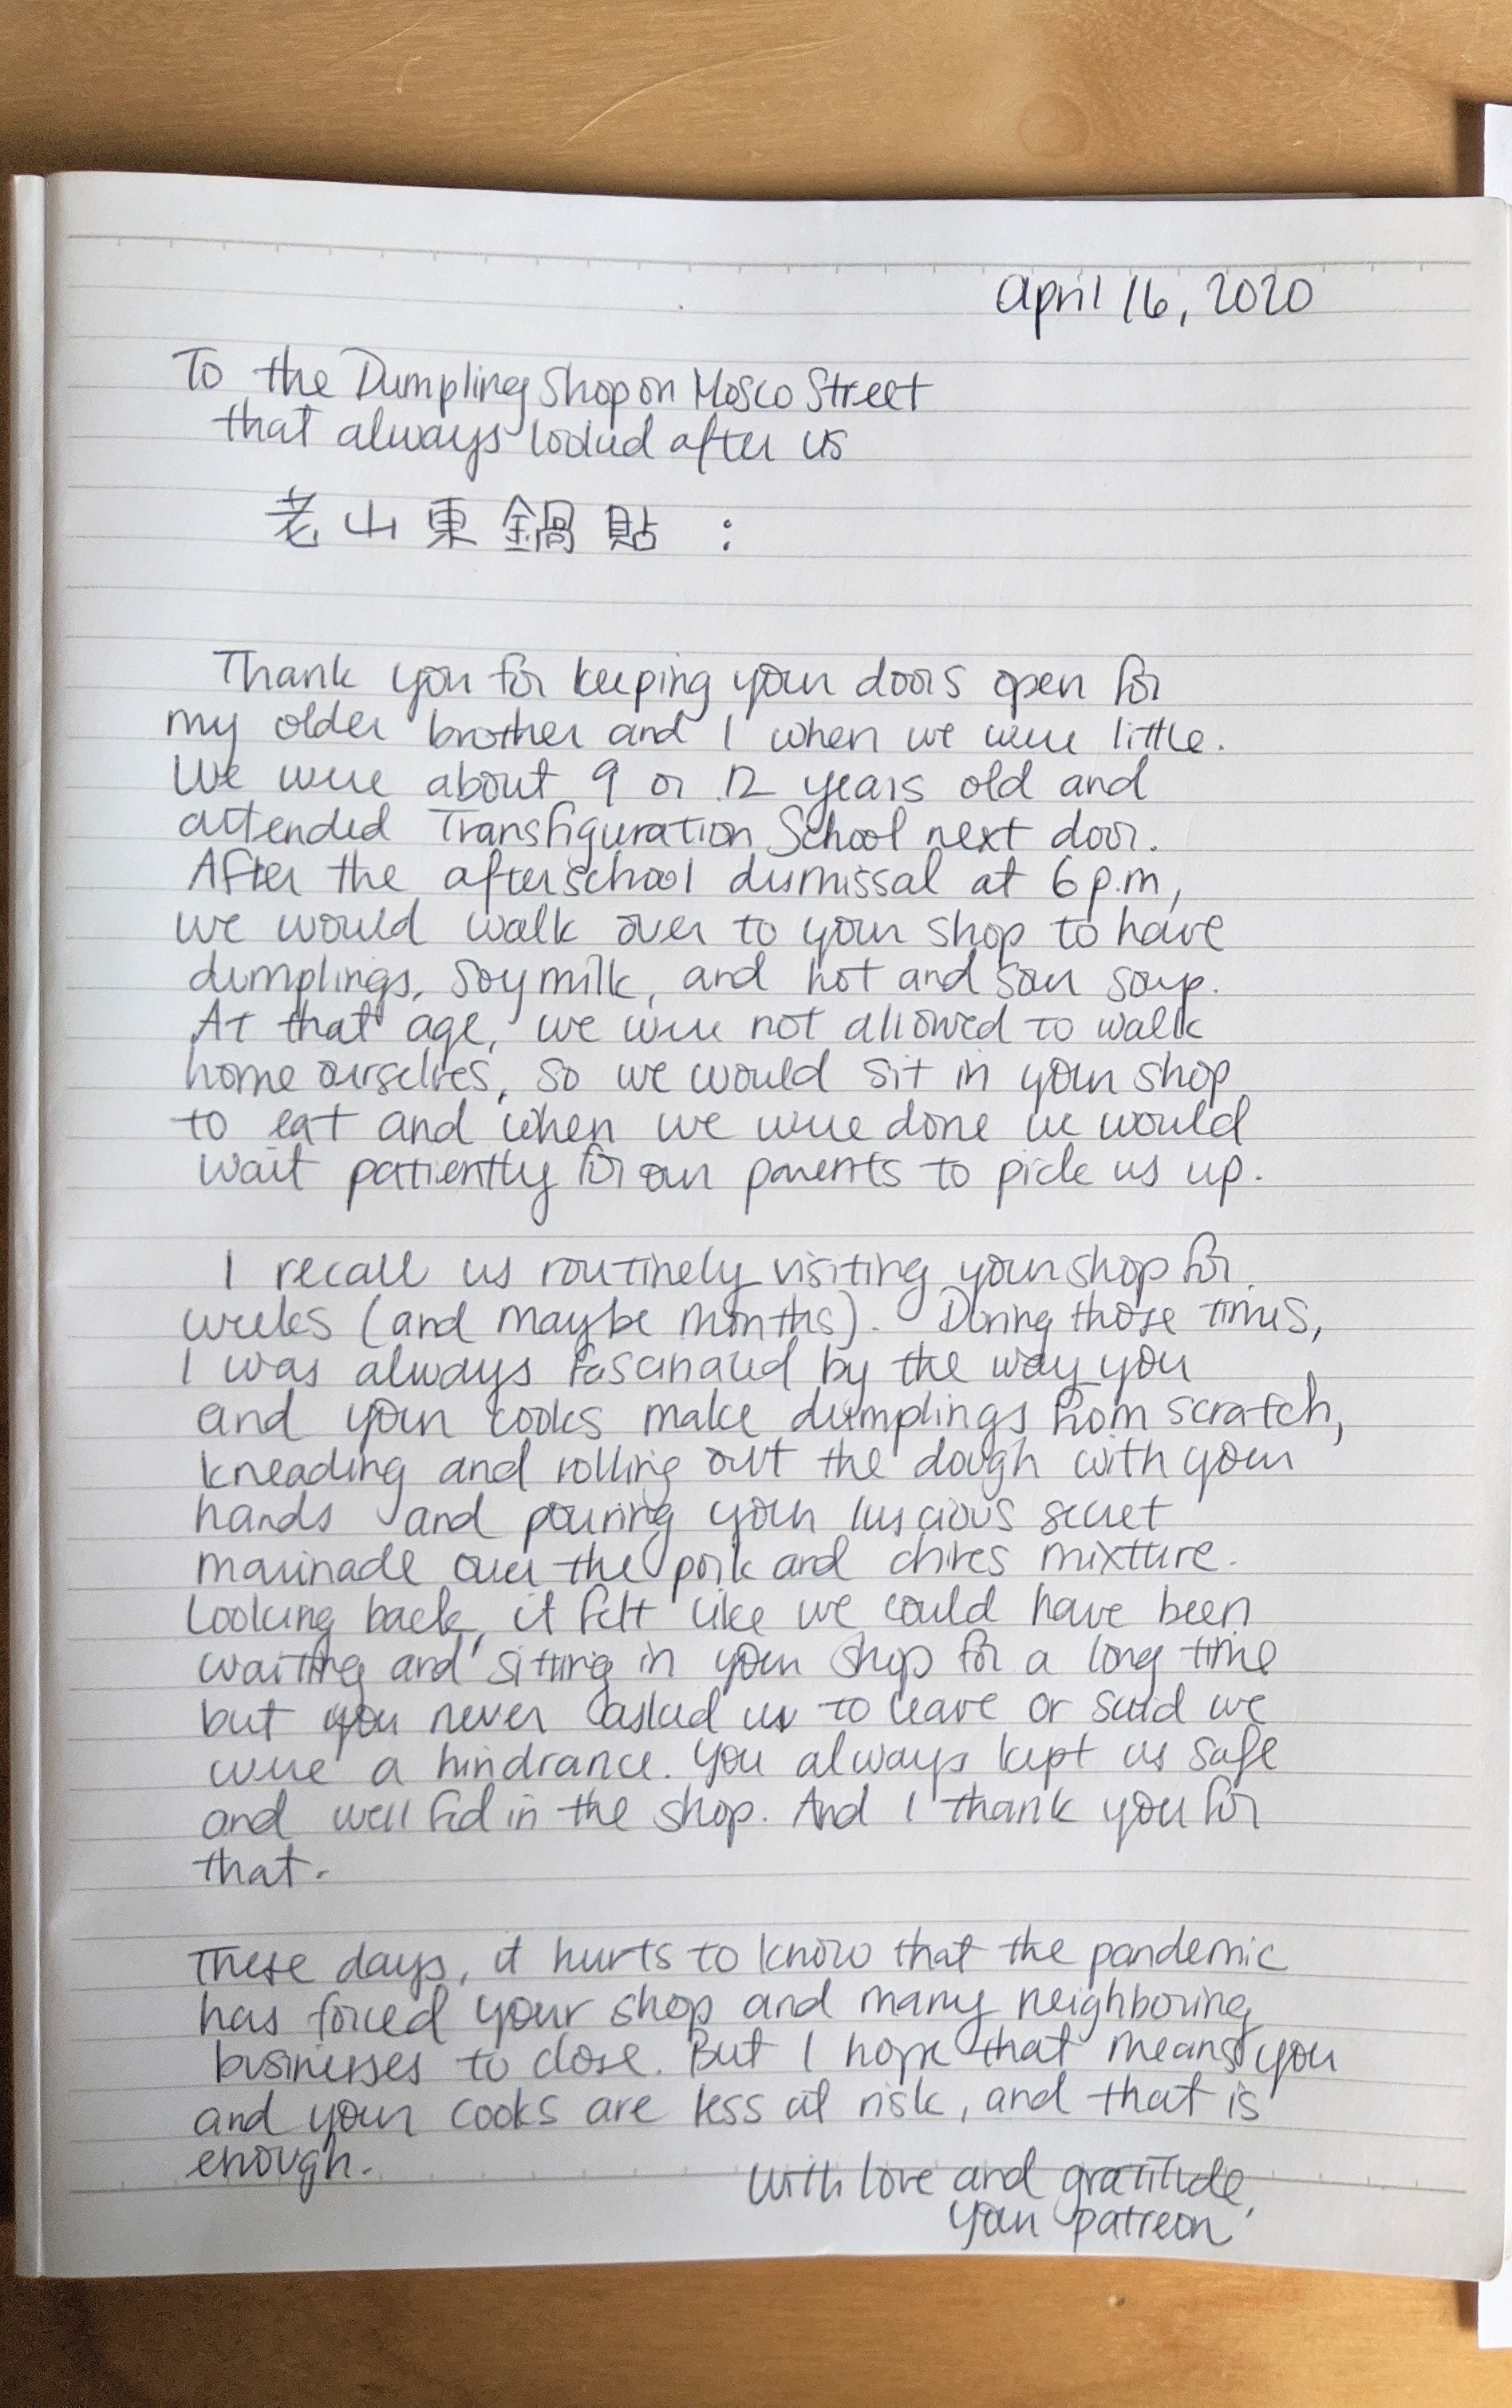 April 16, 2020
To the Dumpling Shop on Mosco Street
that always looked after us
老山東鍋貼 :
Thank you for keeping your doors open for
my older brother and I when we were little.
We were about 9 or 12 years old and
attended Transfiguration School next door.
After the afterschool dismissal at 6 p.m,
we would walk over to your shop to have
dumplings, soymilk, and hot and sour soup.
At that age, we were not allowed to walk
home ourselves, so we would sit in your shop
to eat and when we were done we would
wait patiently for our parents to pick us up.
I recall us routinely visiting your shop for
weeks (and maybe months). During those times,
I was always fascinated by the way you
and your cooks make dumplings from scratch,
kneading and rolling out the dough with your
hands and pouring your luscious secret
marinade over the pork and chives mixture.
Looking back, it felt like we could have been
waiting and sitting in your shop for a long time
but you never asked us to leave or said we
were a hindrance. You always kept us safe
and well fed in the shop. And I thank you for
that.
These days, it hurts to know that the pandemic
has forced your shop and many neighboring
businesses to close. But I hope that means you
and your cooks are less at risk, and that is
enough.
With love and gratitude,
your patreon